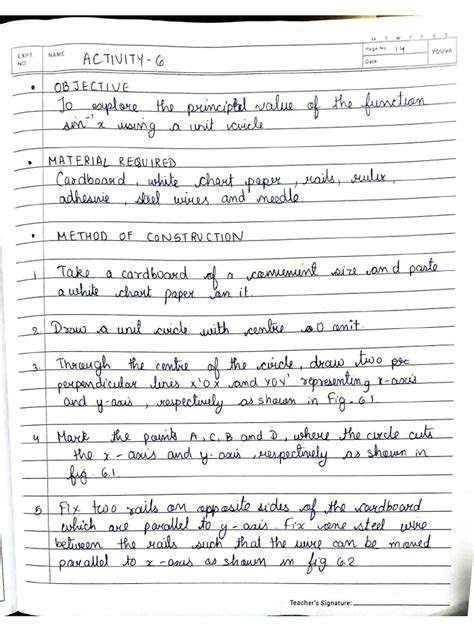 M T W T F S S
EXPT. NO. NAME ACTIVITY-6 Page No. 14 YOUVA
Date
• OBJECTIVE
To explore the principal value of the function
sin⁻¹x using a unit circle
• MATERIAL REQUIRED
Cardboard, white chart paper, rails, ruler,
adhesive, steel wires and needle.
• METHOD OF CONSTRUCTION
1 Take a cardboard of a convenient size and paste
a white chart paper on it.
2. Draw a unit circle with centre O on it.
3. Through the centre of the circle, draw two
perpendicular lines X'OX and YOY' representing x-axis
and y-axis, respectively as shown in Fig. 6.1.
4 Mark the points A, C, B and D, where the circle cuts
the x-axis and y-axis, respectively as shown in
fig. 6.1.
5 Fix two rails on opposite sides of the cardboard
which are parallel to y-axis. Fix one steel wire
between the rails such that the wire can be moved
parallel to x-axis as shown in fig 6.2
Teacher's Signature: